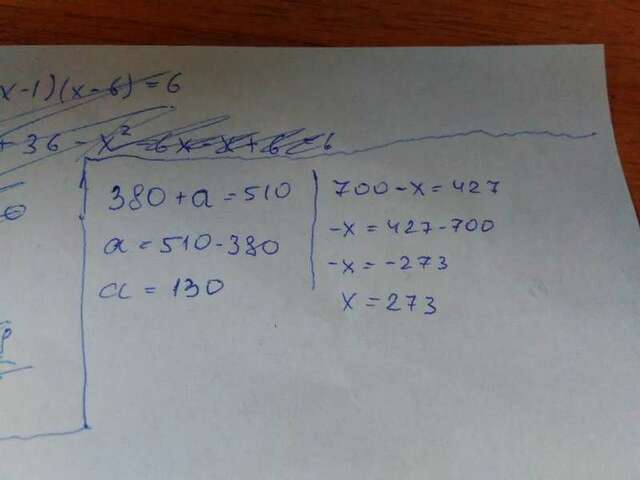 x-1)(x-6)=6
+36-x²-6x-x+6=6
380+a=510
a=510-380
a=130
700-x=427
-x=427-700
-x=-273
x=273